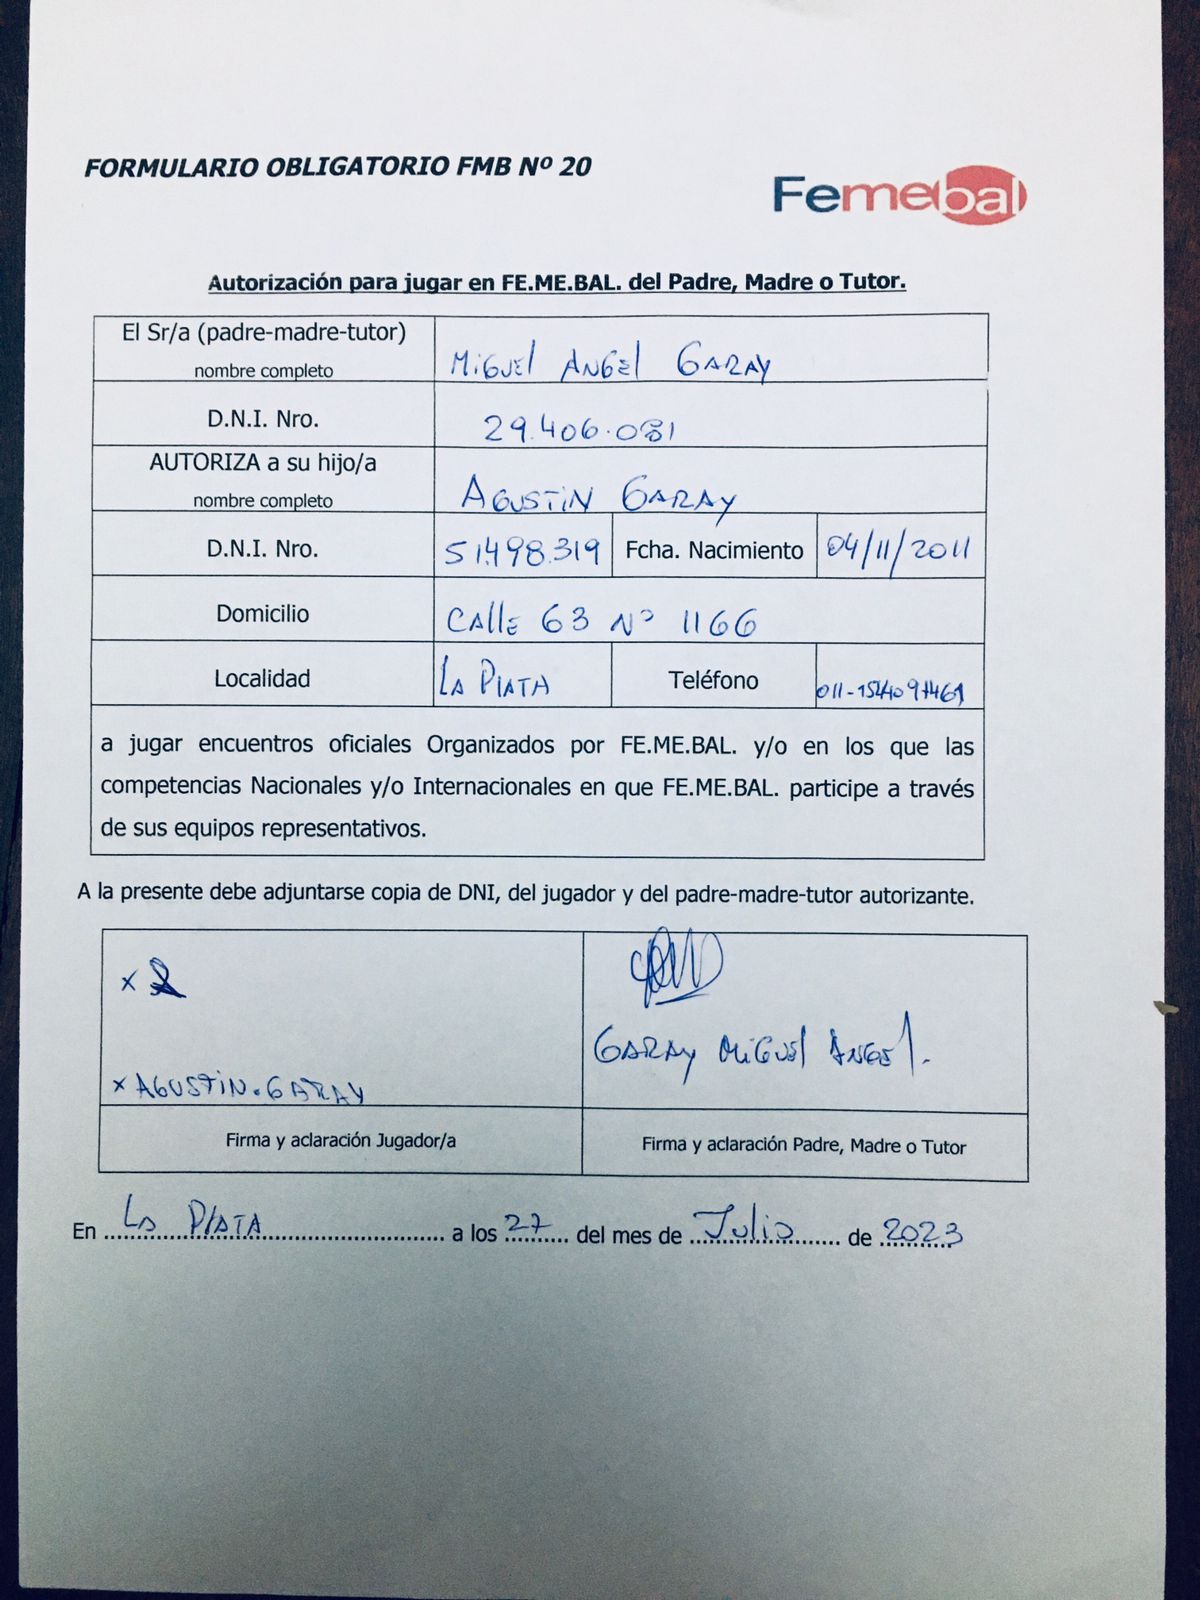 FORMULARIO OBLIGATORIO FMB Nº 20
Femebal
Autorización para jugar en FE.ME.BAL. del Padre, Madre o Tutor.
El Sr/a (padre-madre-tutor)
nombre completo
MIGUEL ANGEL GARAY
D.N.I. Nro. 29.406.081
AUTORIZA a su hijo/a
nombre completo
AGUSTIN GARAY
D.N.I. Nro. 51.498.319 Fcha. Nacimiento 04/11/2011
Domicilio CALLE 63 Nº 1166
Localidad LA PLATA Teléfono
a jugar encuentros oficiales Organizados por FE.ME.BAL. y/o en los que las
competencias Nacionales y/o Internacionales en que FE.ME.BAL. participe a través
de sus equipos representativos.
A la presente debe adjuntarse copia de DNI, del jugador y del padre-madre-tutor autorizante.
x
x AGUSTIN.GARAY
GARAY MIGUEL ANGEL.
Firma y aclaración Jugador/a Firma y aclaración Padre, Madre o Tutor
En LA PLATA a los 27 del mes de Julio de 2023